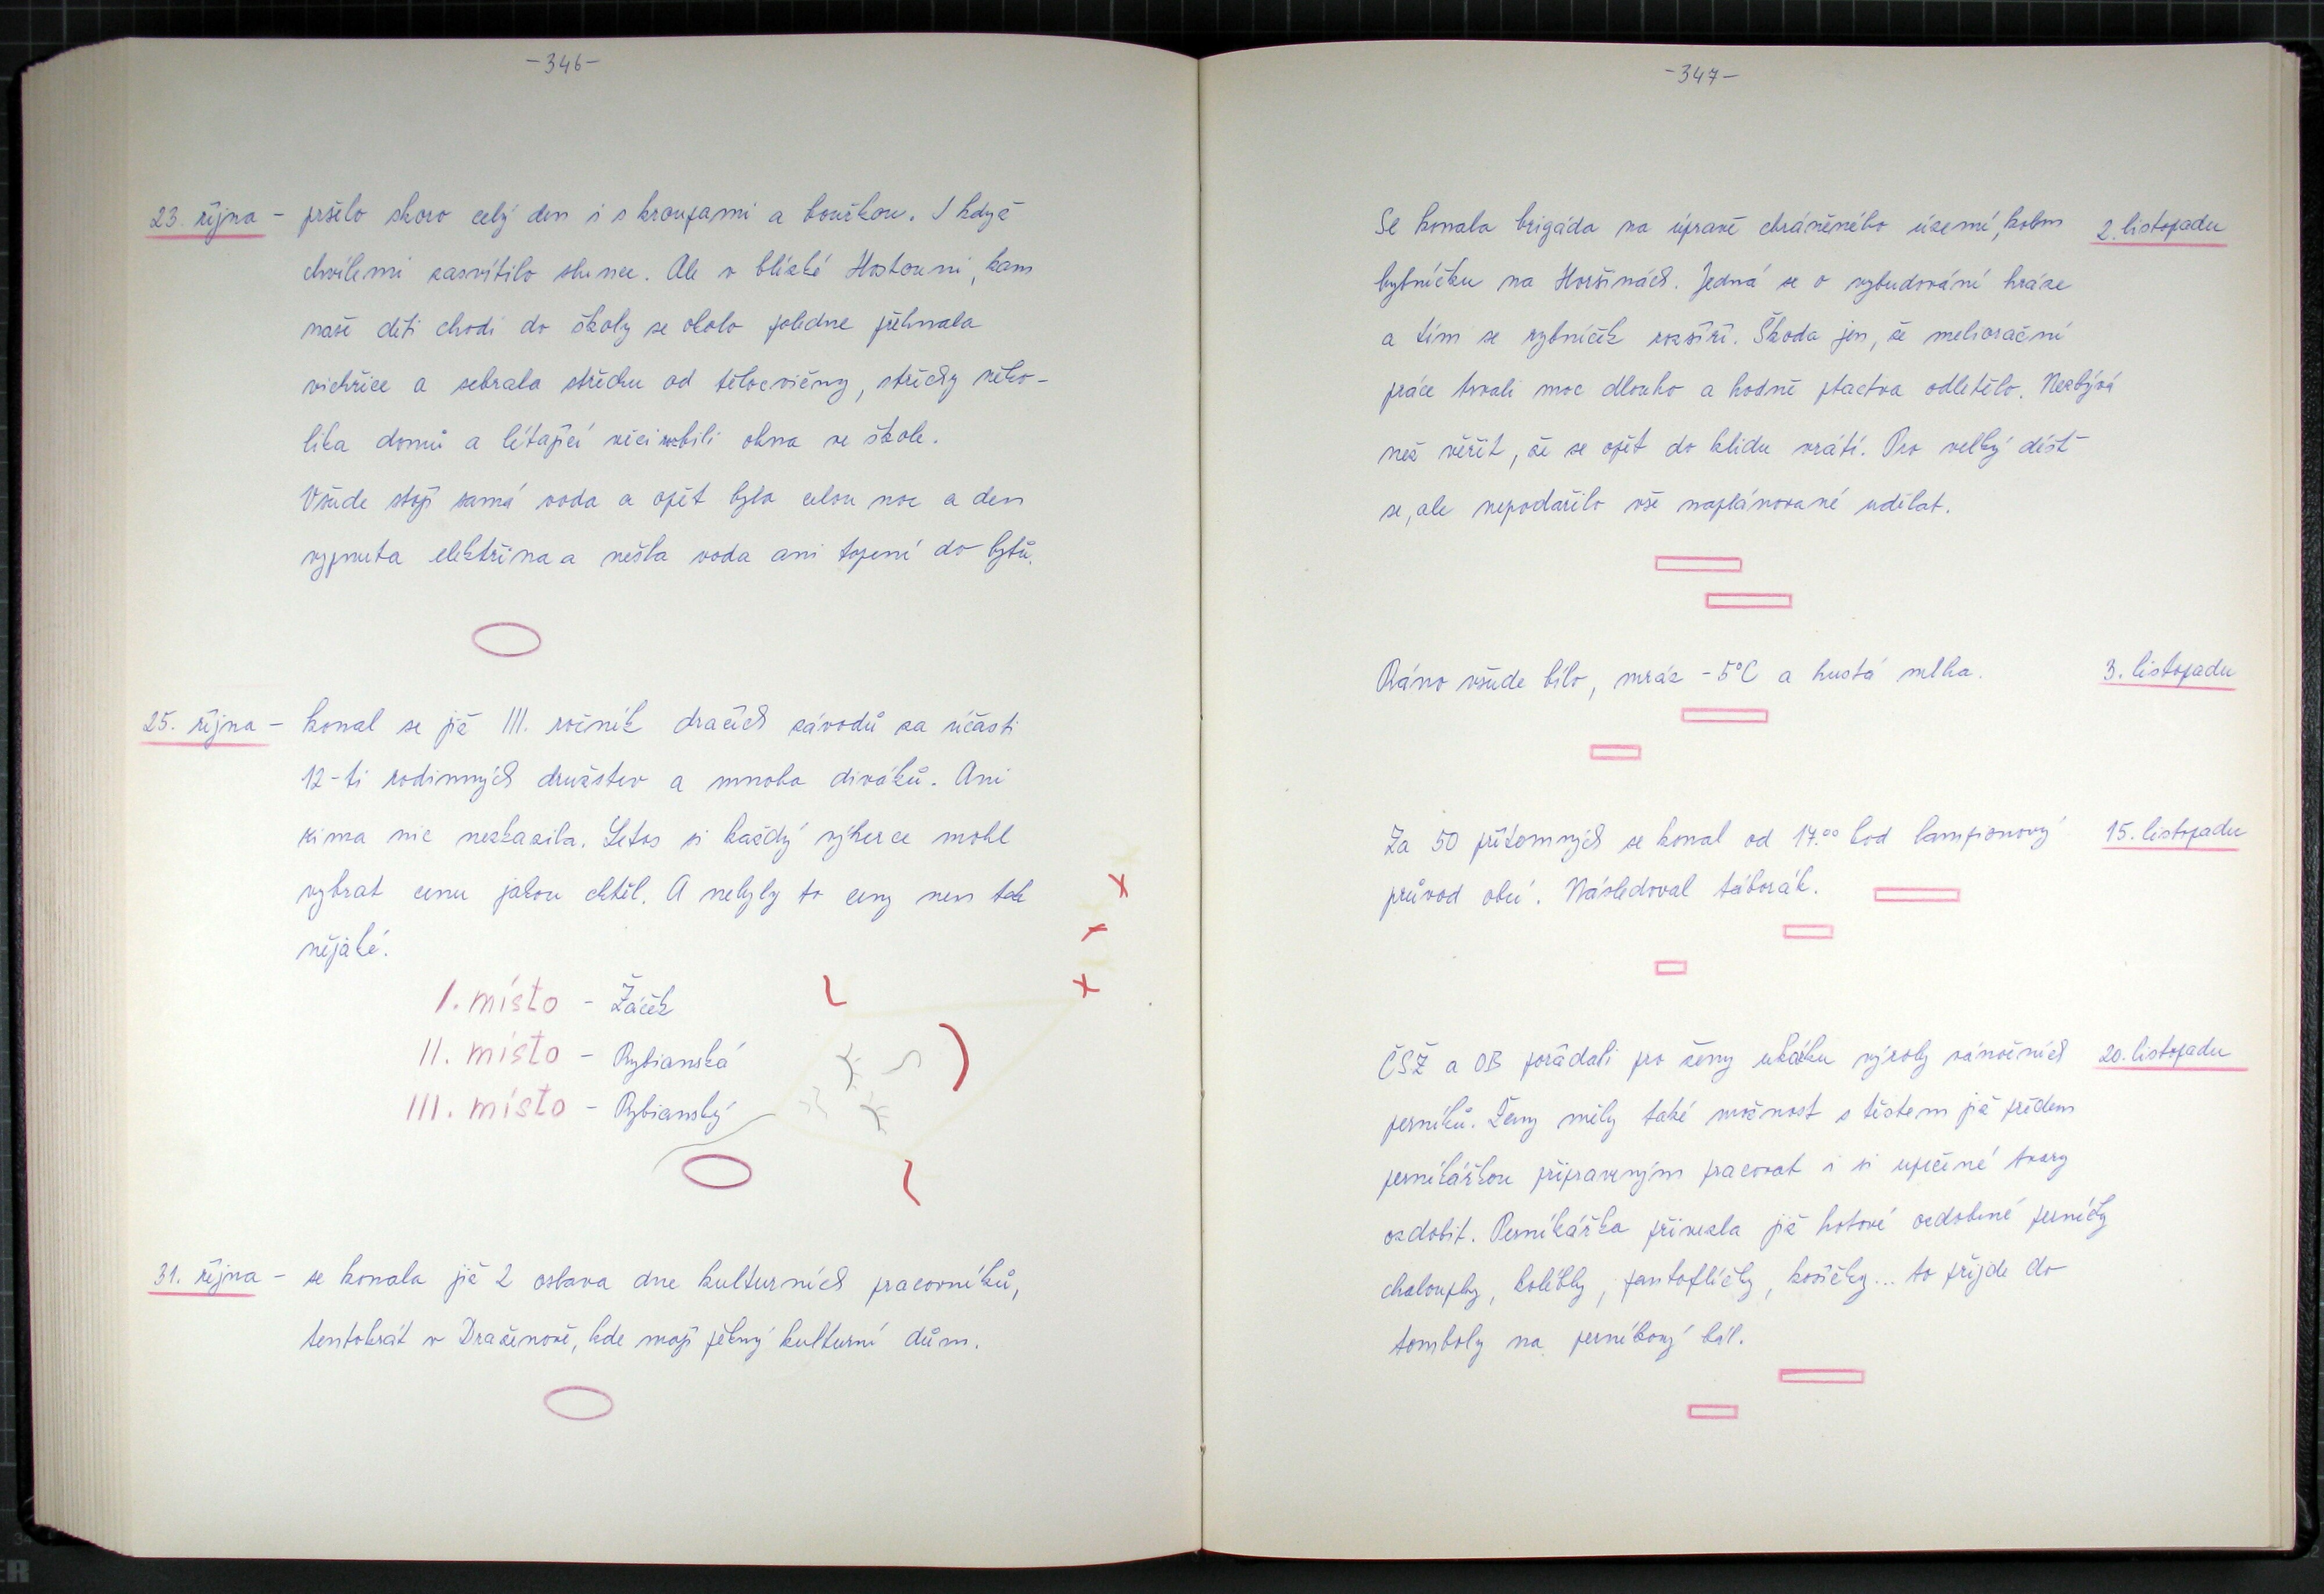 -346-
23. října - pršelo skoro celý den i s kroupami a bouřkou. I když
chvílemi zasvítilo slunce. Ale v blízké Hostouni, kam
naše děti chodí do školy se okolo poledne přehnala
vichřice a sebrala střechu od tělocvičny, střechy něko-
lika domů a létající věci rozbili okna ve škole.
Všude stojí samá voda a opět byla celou noc a den
vypnuta elektřina a nešla voda ani topení do bytů.
25. října - konal se již III. ročník dračích závodů za účasti
12-ti rodinných družstev a mnoha diváků. Ani
zima nic nezkazila. Letos si každý výherce mohl
vybrat cenu jakou chtěl. A nebyly to ceny nen tak
nějaké.
I. místo - Žáček
II. místo - Rybianská
III. místo - Rybianský
31. října - se konala již 2 oslava dne kulturních pracovníků,
tentokrát v Draženově, kde mají pěkný kulturní dům.
-347-
Se konala brigáda na úpravě chráněného území, kolem 2. listopadu
rybníčku na Horšinách. Jedná se o vybudování hráze
a tím se rybníček rozšíří. Škoda jen, že meliorační
práce trvali moc dlouho a hodně ptactva odletělo. Nezbývá
než věřit, že se opět do klidu vrátí. Pro velký déšť
se, ale nepodařilo vše naplánované udělat.
Ráno všude bílo, mráz -5°C a hustá mlha. 3. listopadu
Za 50 přítomných se konal od 17.00 hod lampionový 15. listopadu
průvod obcí. Následoval táborák.
ČSŽ a OB pořádali pro ženy ukázku výroby vánočních 20. listopadu
perníků. Ženy měly také možnost s těstem již předem
perníkářkou připraveným pracovat i si upečené tvary
ozdobit. Perníkářka přivezla již hotové ozdobené perníčky
chaloupky, kolébky, pantoflíčky, košíčky... to přijde do
tomboly na perníkový bál.